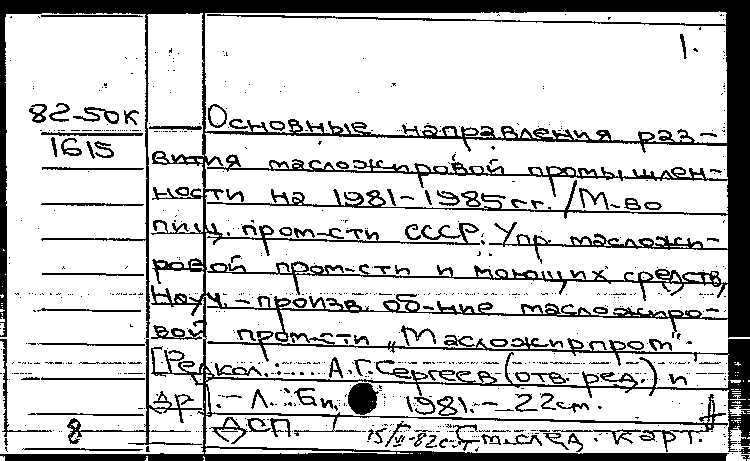 1.
82-50к
1615
Основные направления раз-
вития масложировой промышлен-
ности на 1981-1985 гг. / М-во
пищ. пром-сти СССР. Упр. масложи-
ровой пром-сти и моющих средств,
Науч.-произв. об-ние масложиро-
вой пром-сти „Масложирпром";
[Редкол.:... А.Г. Сергеев (отв. ред.) и
др.].- Л. : Би, 1981.- 22 см.
ДСП.
8
См. след. карт.